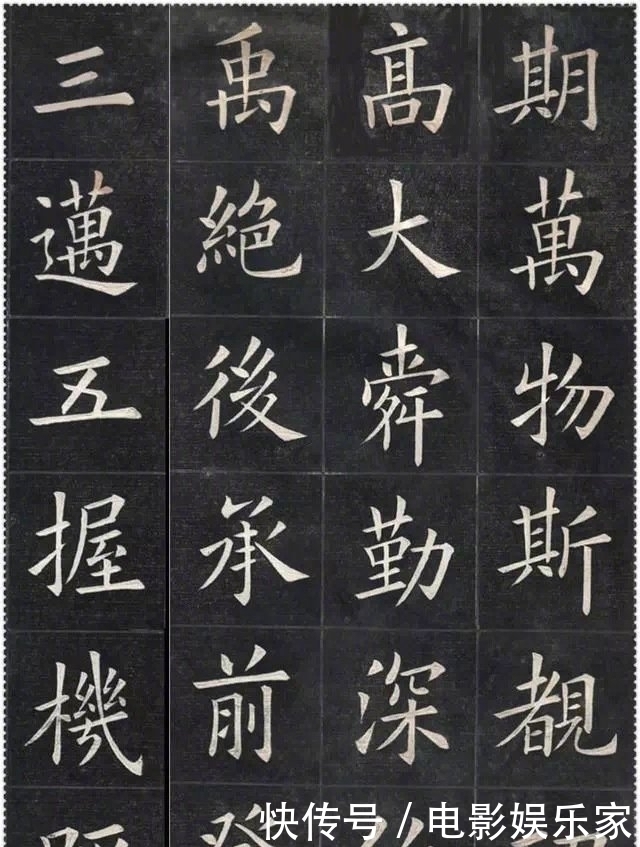 期萬物斯覩
髙大舜勤深
禹絶後承前
三邁五握機
快传号 / 电影娱乐家